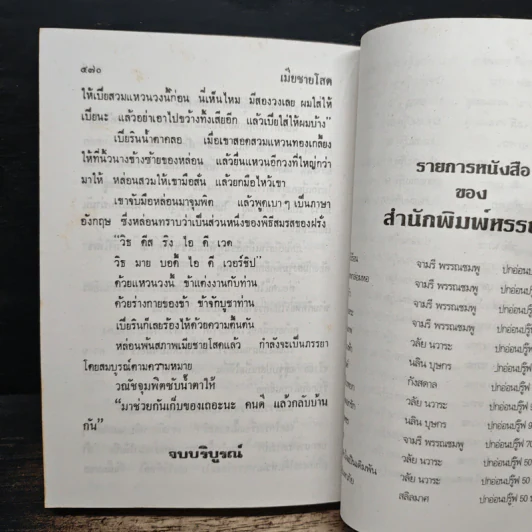 ๕๗๐
เมียชายโสด
ให้เบียสวมแหวนวงนี้ก่อน นี่เห็นไหม มีสองวงเลย ผมใส่ให้
เบียนะ แล้วอย่าเอาไปขว้างทิ้งเสียอีก แล้วเบียใส่ให้ผมบ้าง”
เบียรินน้ำตาคลอ เมื่อเขาสอดสวมแหวนทองเกลี้ยง
ให้ที่นิ้วนางข้างซ้ายของหล่อน แล้วยื่นแหวนอีกวงที่ใหญ่กว่า
มาให้ หล่อนสวมให้เขามือสั่น แล้วยกมือไหว้เขา
เขาจับมือหล่อนมาจุมพิต แล้วพูดเบาๆ เป็นภาษา
อังกฤษ ซึ่งหล่อนทราบว่าเป็นส่วนหนึ่งของพิธีสมรสของฝรั่ง
“วิธ ดิส ริง ไอ ดี เวด
วิธ มาย บอดี้ ไอ ดี เวอร์ชิป”
ด้วยแหวนวงนี้ ข้าแต่งงานกับท่าน
ด้วยร่างกายของข้า ข้าจักบูชาท่าน
เบียรินก็เลยร้องไห้ด้วยความตื้นตัน
หล่อนพ้นสภาพเมียชายโสดแล้ว กำลังจะเป็นภรรยา
โดยสมบูรณ์ตามความหมาย
วณัชจุมพิตซับน้ำตาให้
“มาช่วยกันเก็บของเถอะนะ คนดี แล้วกลับบ้าน
กัน”
จบบริบูรณ์
รายการหนังสือ
ของ
สำนักพิมพ์หรรษ
จามรี พรรณชมพู ปกอ่อนปรู๊ฟ
จามรี พรรณชมพู ปกอ่อนปรู๊ฟ
จามรี พรรณชมพู ปกอ่อนปรู๊ฟ
จามรี พรรณชมพู ปกอ่อนปรู๊ฟ
วลัย นวาระ ปกอ่อนปรู๊ฟ
นลิน บุษกร ปกอ่อนปรู๊ฟ
กังสดาล ปกอ่อนปรู๊ฟ
วลัย นวาระ ปกอ่อนปรู๊ฟ
นลิน บุษกร ปกอ่อนปรู๊ฟ 9
จามรี พรรณชมพู ปกอ่อนปรู๊ฟ 70
วลัย นวาระ ปกอ่อนปรู๊ฟ 50
วลัย นวาระ ปกอ่อนปรู๊ฟ 50
สลิลมาศ ปกอ่อนปรู๊ฟ 50